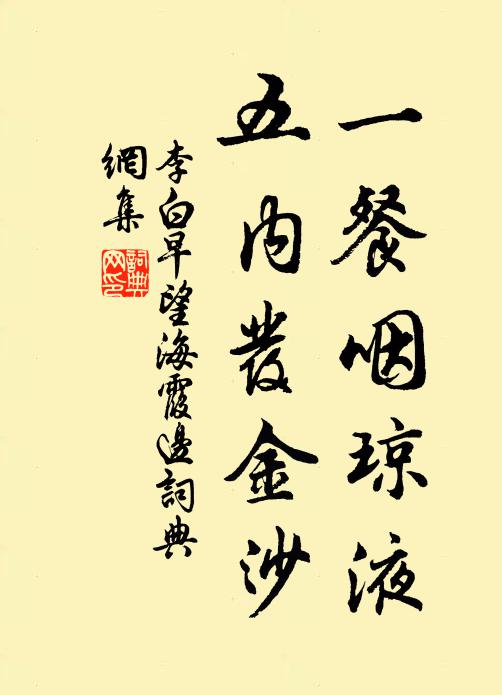 一餐咽琼液
五内發金沙
李白早望海霞邊詞典
網集
詞典
网印